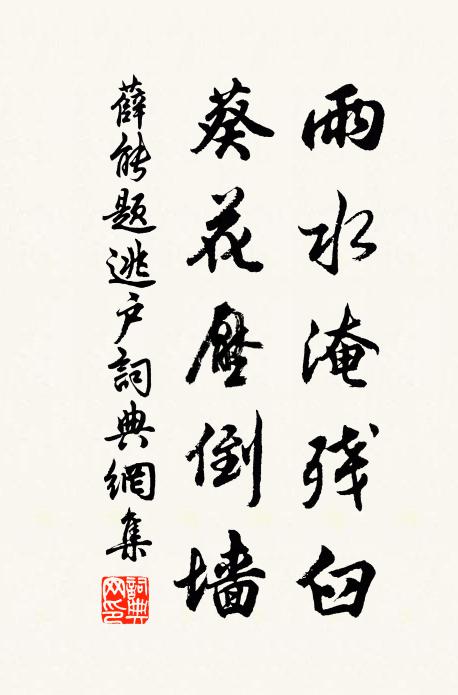 雨水淹残臼
葵花壓倒墙
薛能题逃户詞典網集
詞典網印